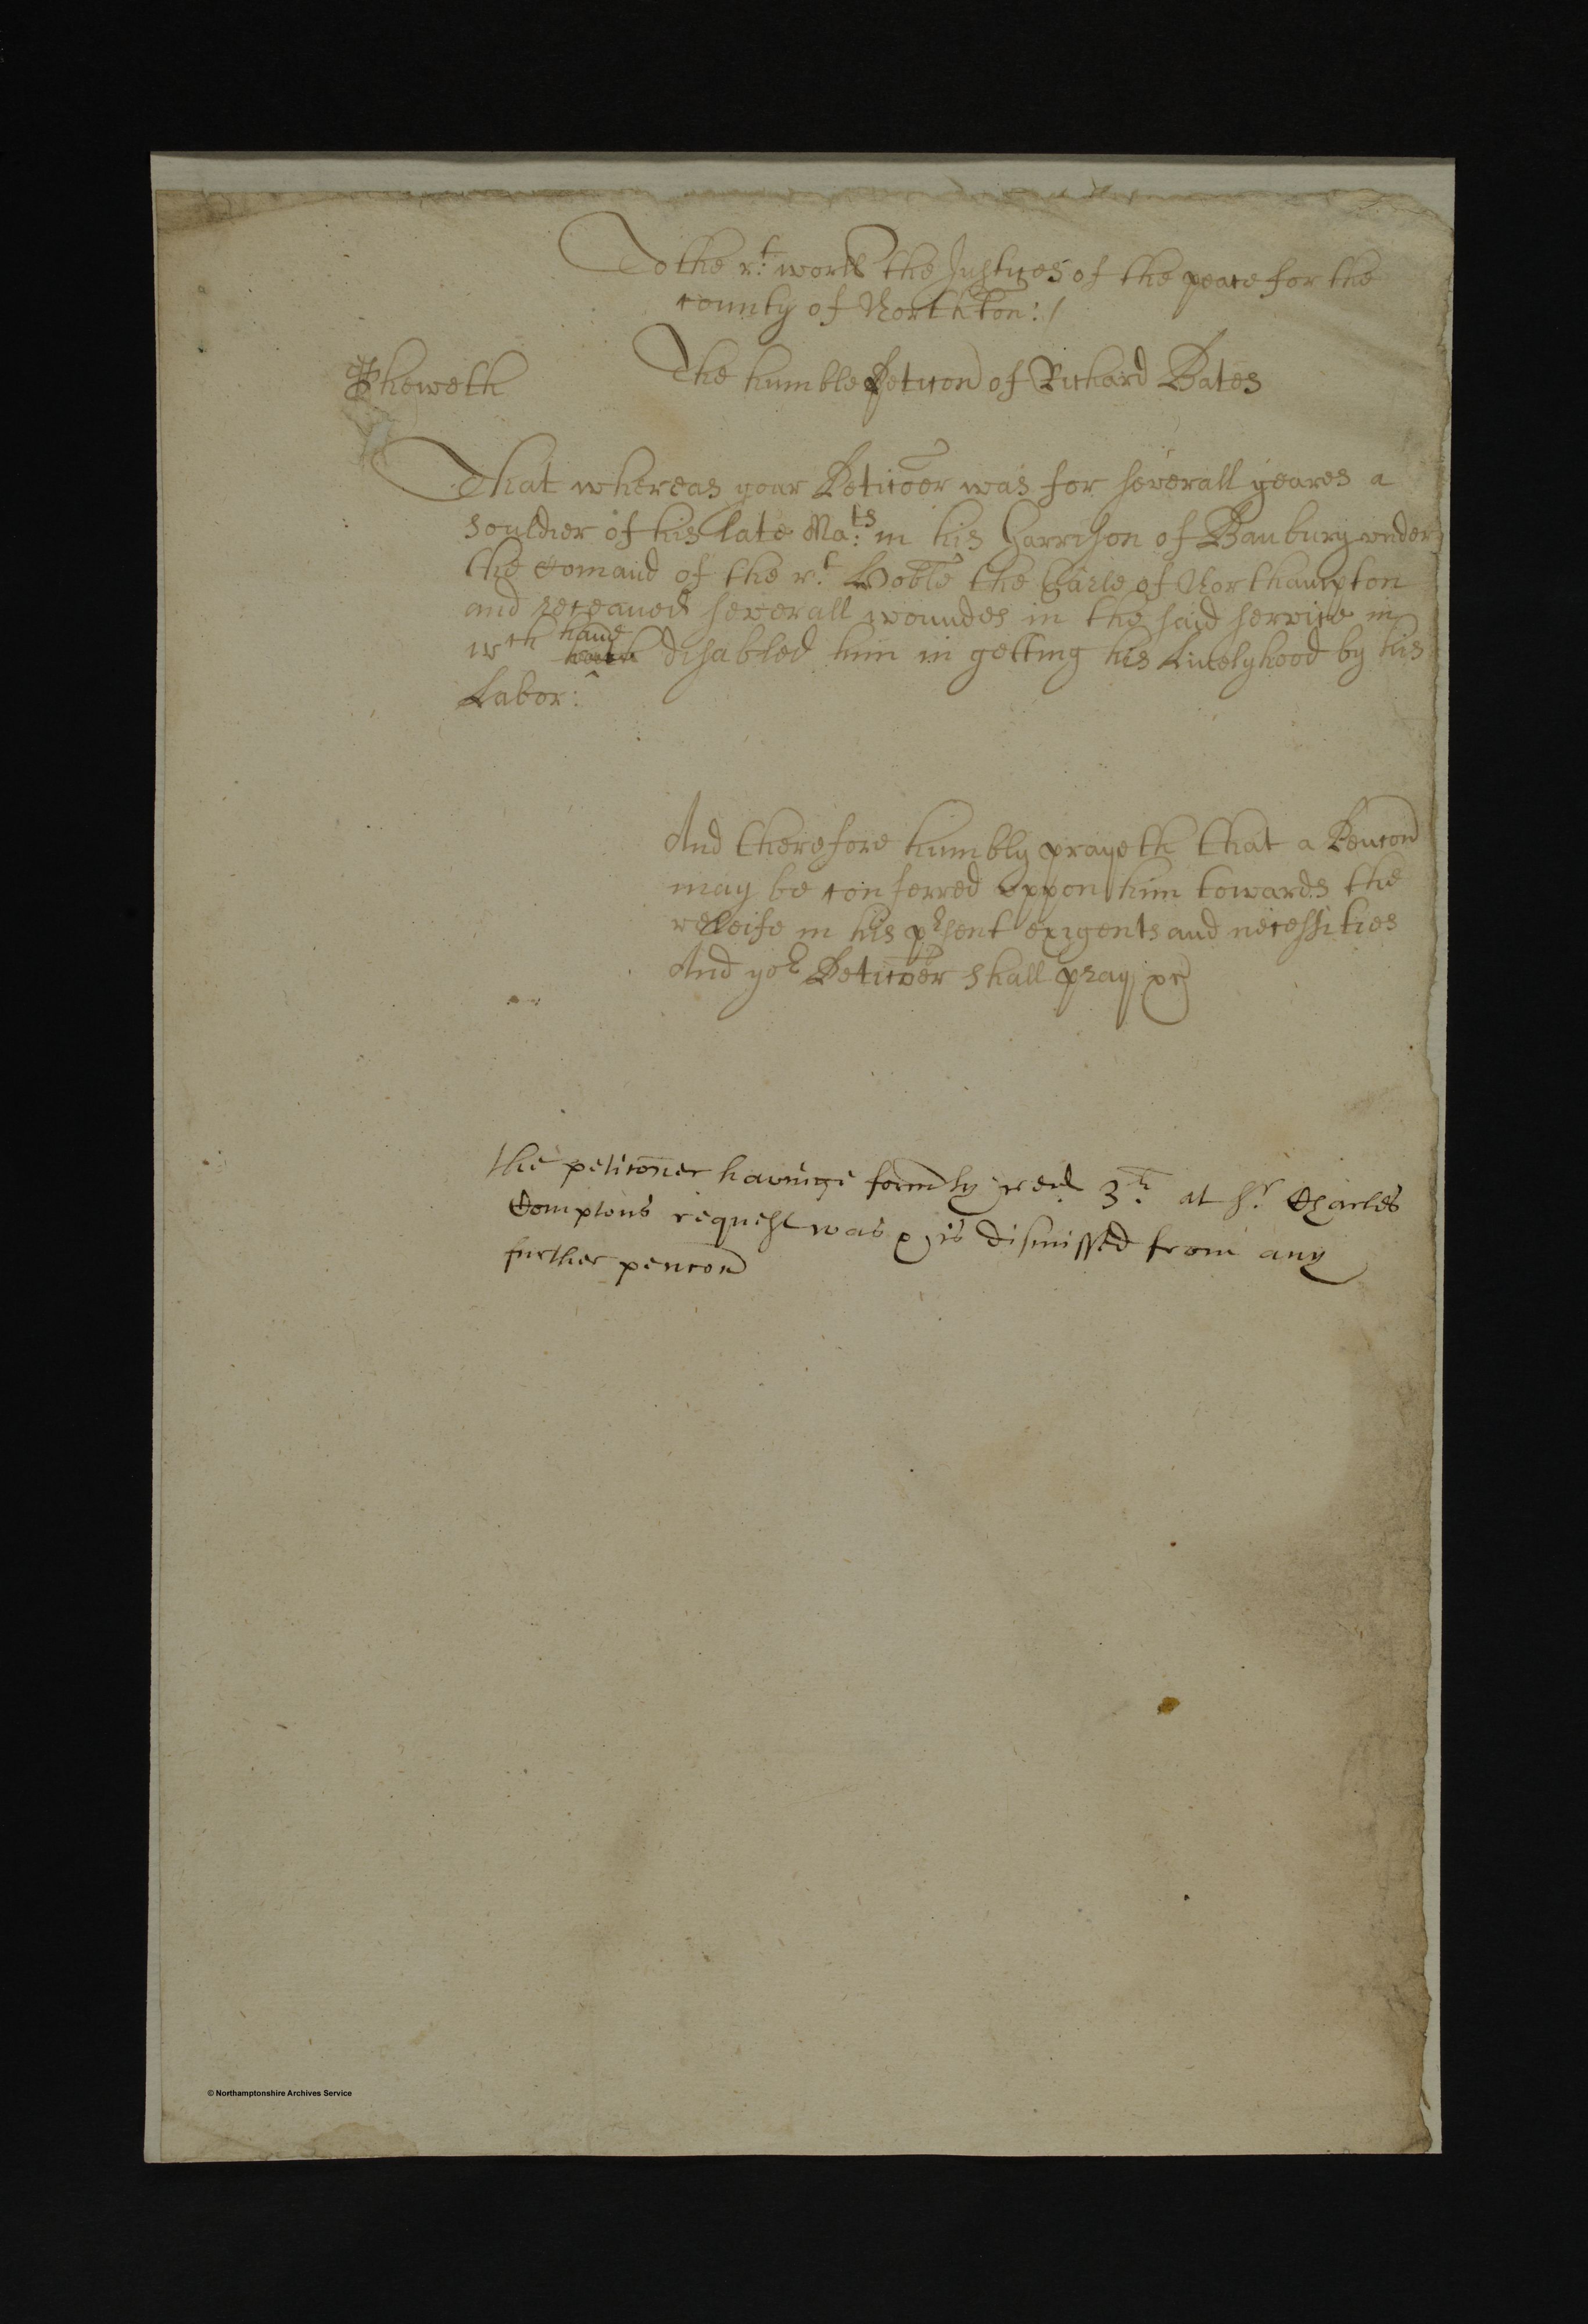 To the rt: worll the Justices of the peace for the
county of Northton:/
The humble Peticon of Richard Bates
Sheweth
That whereas your Peticoer was for severall yeares a
souldier of his late Ma:ts in his Garrison of Banbury vnder
the Comand of the rt. Hoble the Earle of Northampton
and receaued severall woundes in the said service in
wch haue disabled him in getting his Livelyhood by his
Labor:
And therefore humbly prayeth that a Pencon
may be conferred vppon him towards the
releife in his psent exigents and necessities
And yor Peticoer shall pray &c
the peticoner havinge formly recd 3li. at Sr. Charles
Comptons request was & is dismissed from any
further pencon
© Northamptonshire Archives Service